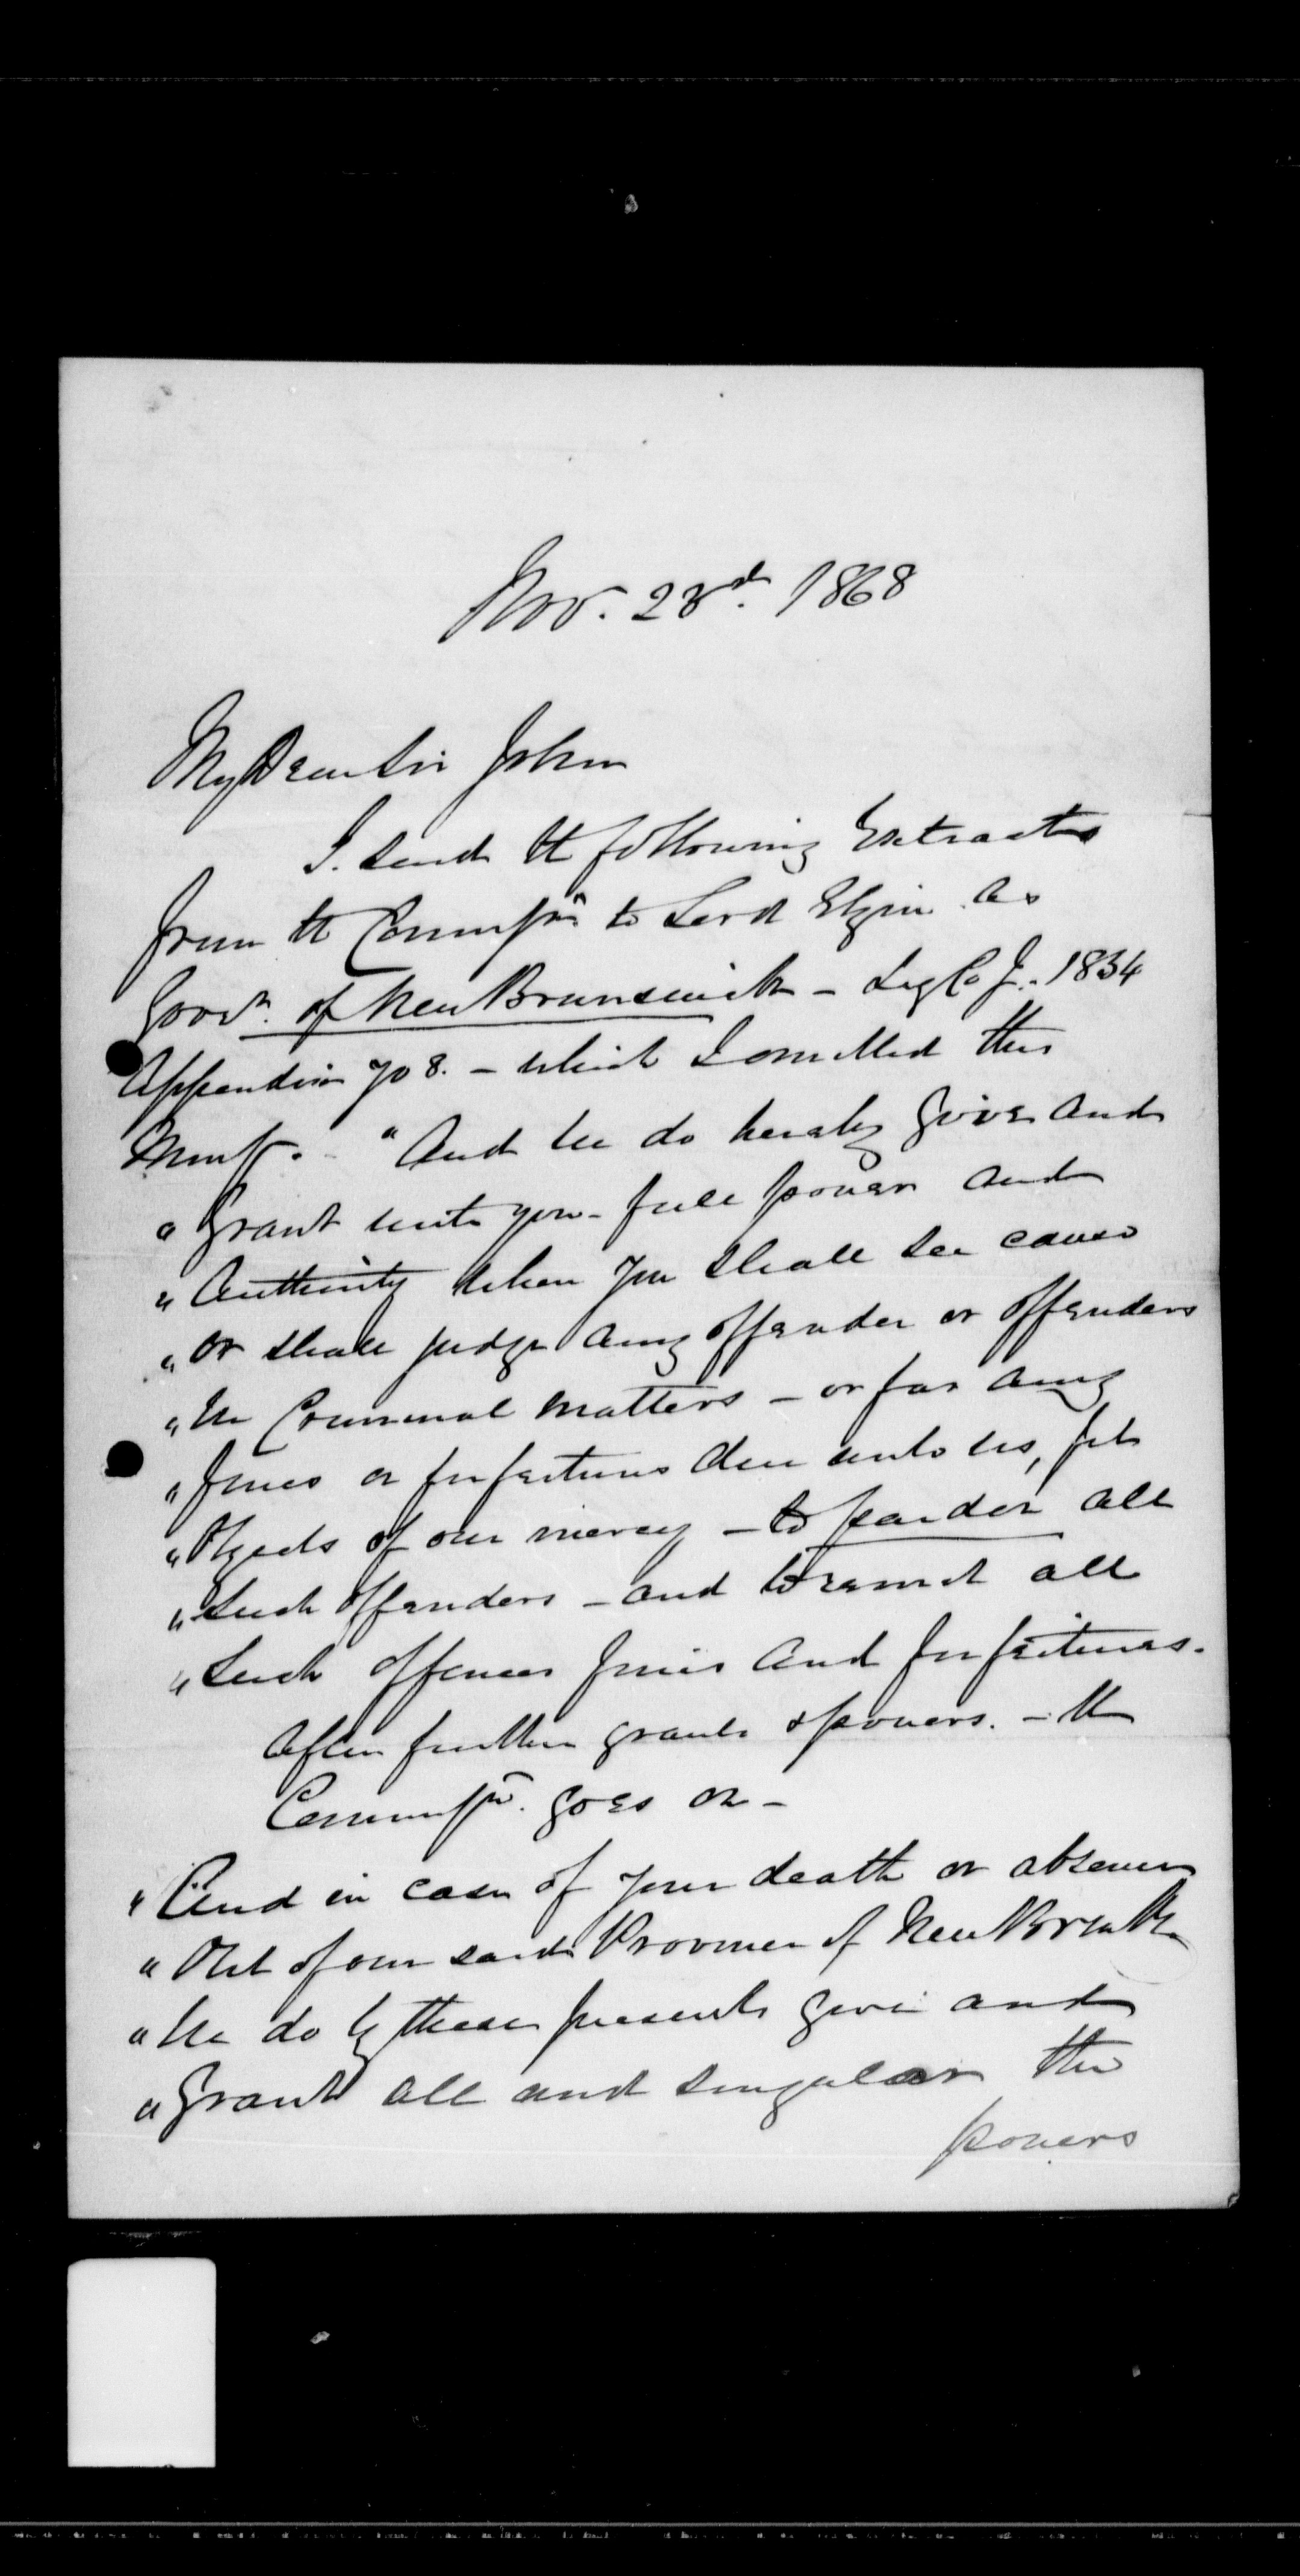 Nov. 23d. 1868
My Dear Sir John
I send the following Extracts
from the Commissn to Lord Elgin as
Govr. of New Brunswick - Leg Co J. 1834
Appendix 708. - which I omitted this
" And we do hereby give and
" Grant unto you - full power and
" Authority when you shall see cause
" or shall judge any offender or offenders
" In Criminal matters - or for any
" fines or forfeitures due unto us, fit
" Objects of our mercy - to pardon all
" Such offenders - and to remit all
" Such offences fines and forfeitures.
After further grants of powers. - the
Commissn. goes on -
" And in case of your death or absence
" Out of our said Province of New Brswk
" We do by these presents give and
" Grant all and singular the
powers